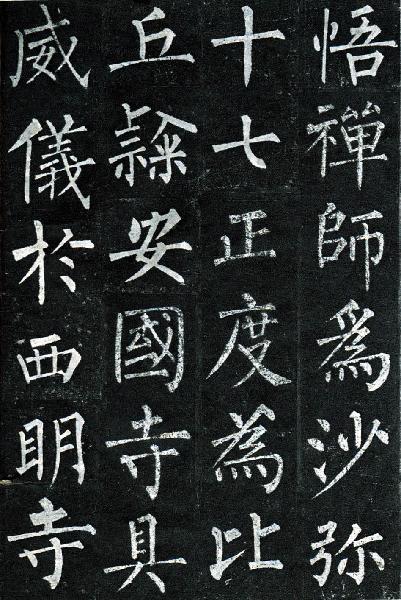 悟禪師爲沙弥
十七正度為比
丘隸安國寺具
威儀於西眀寺